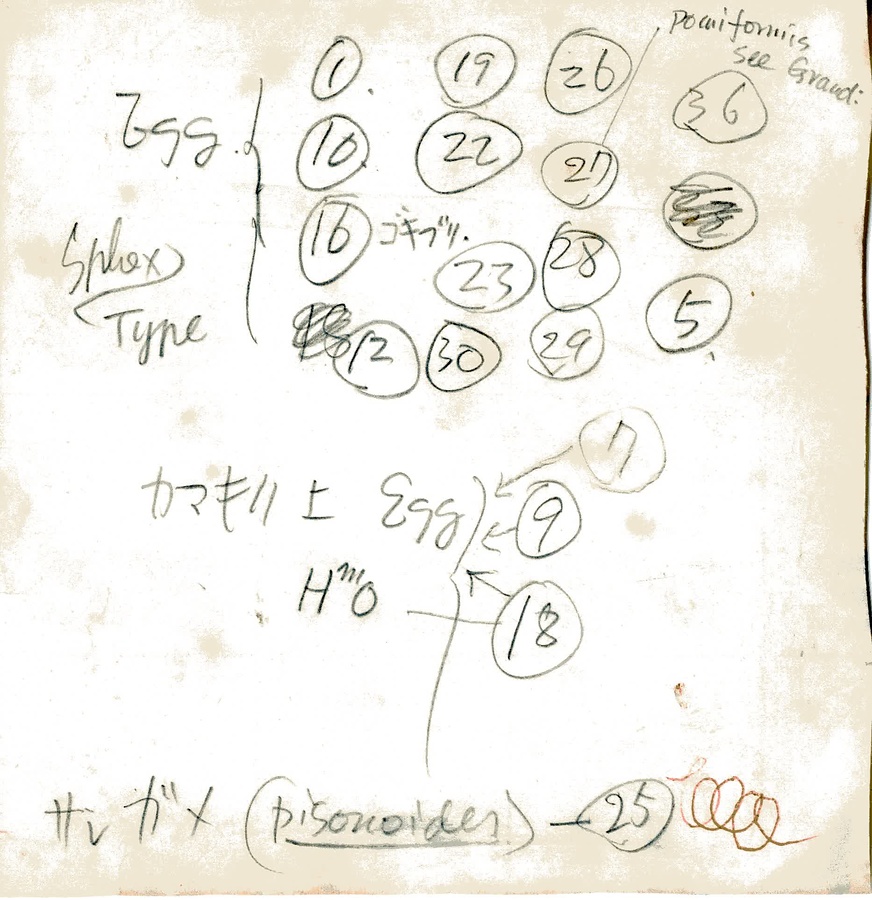 pomiformis
see Grandi
Egg 1 19 26 36
10 22 27
Sphex 16 ゴキブリ. 23 28
Type 12 30 29 5
7
カマキリ 上 Egg 9
H'''O 18
サシガメ (pisonoides) — 25